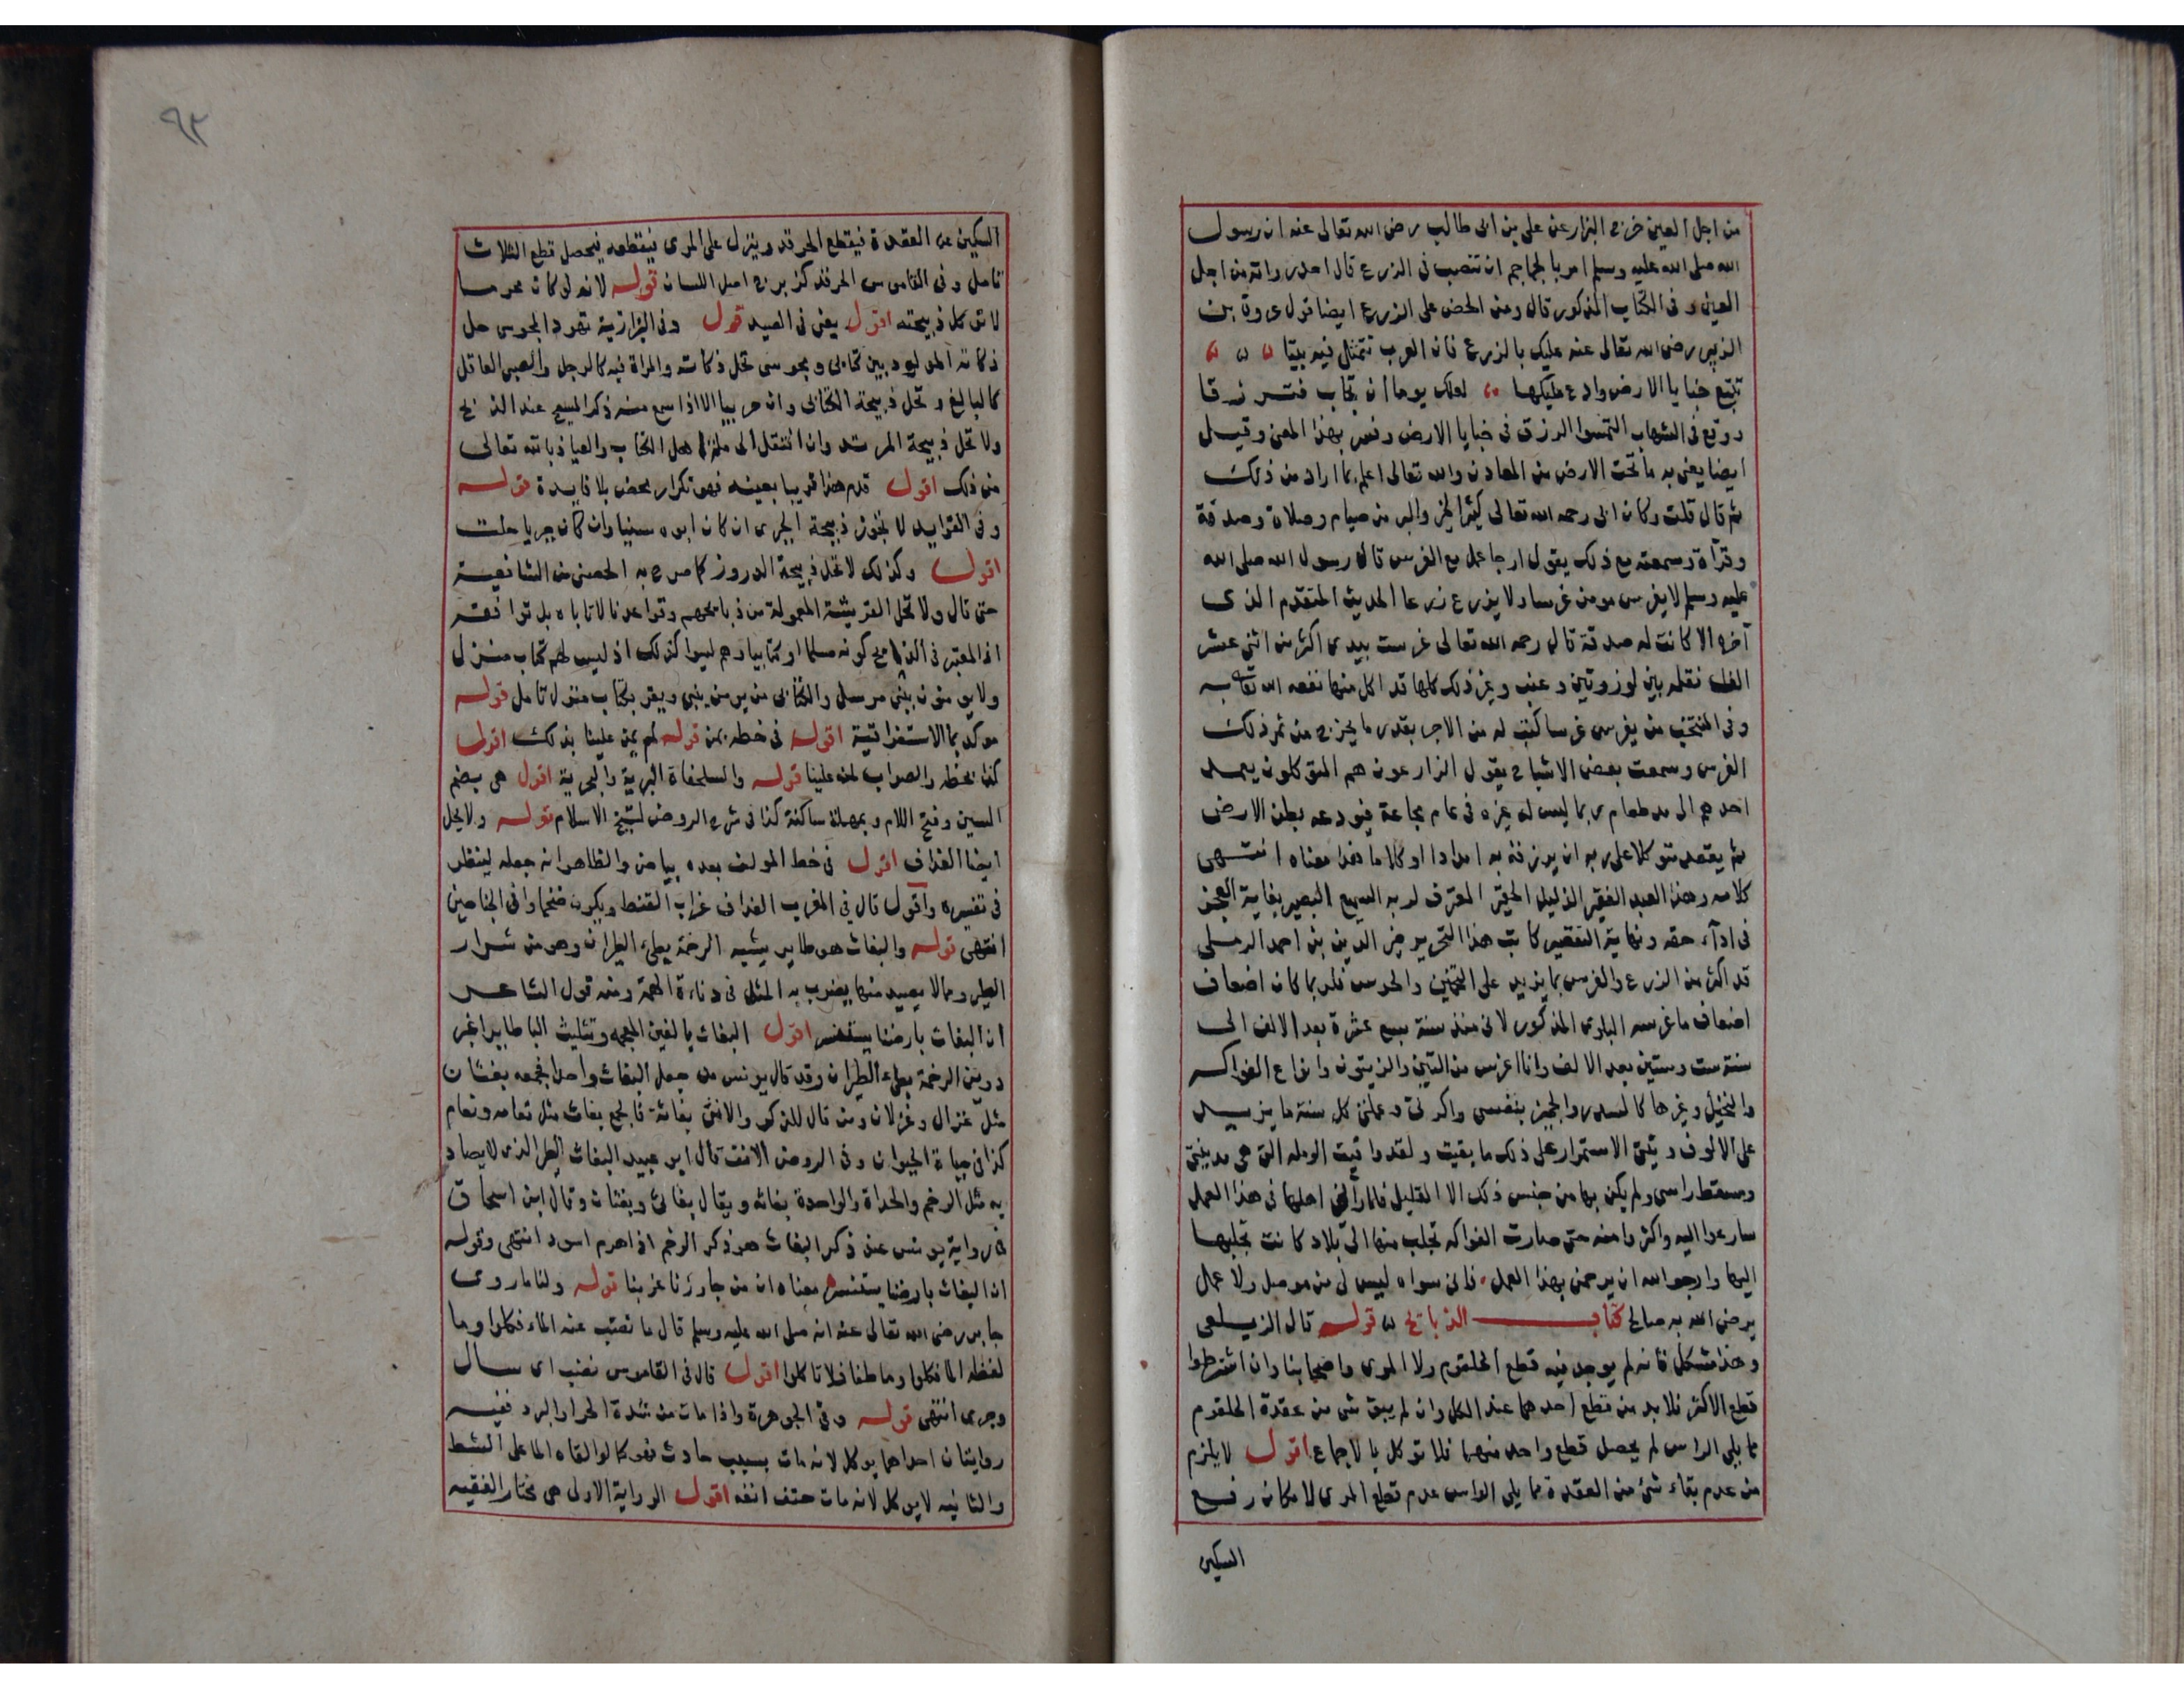 من اجل العين خرج البزار عن على بن ابى طالب رضى الله تعالى عنه ان رسول
الله صلى الله عليه وسلم امر بالجماجم ان تنصب فى الزرع قال احد رواته من اجل
العين وفى الكتاب المذكور قال ومن الحض على الزرع ايضا قول عروة بن
الزبير رضى الله تعالى عنه عليك بالزرع فان العرب تتمثل فيه بيتا
تتبع خبايا الارض وادع مليكها لعلك يوما ان تجاب فترزقا
ووقع فى الشهاب التمسوا الرزق فى خبايا الارض وفسر بهذا المعنى وقيل
ايضا يعنى به ما تحت الارض من المعادن والله تعالى اعلم بما اراد من ذلك
ثم قال قلت وكان ابى رحمه الله تعالى كثير الخير والبر من صيام وصلاة وصدقة
وقرآة وسمعته مع ذلك يقول ارجا عمل مع الغرس قال رسول الله صلى الله
عليه وسلم لا يغرس مومن غرسا ولا يزرع زرعا الحديث المتقدم الذى
آخره الا كانت له صدقة قال رحمه الله تعالى غرست بيدى اكثر من اثنى عشر
الف نقله بين لوز وتين وعنب وغير ذلك كلها قد اكل منها نفعه الله تعالى به
وفى المنتخب من يغرس غرسا كتب له من الاجر بقدر ما يخرج من ثمر ذلك
الغرس وسمعت بعض الاشياخ يقول الزارعون هم المتوكلون يعمد
احدهم الى مد طعام ربما ليس له غيره فى عام مجاعة فيودعه بطن الارض
ثم يقعد متوكلا على ربه ان يرزقه به امدادا او كلاما هذا معناه انتهى
كلامه وهذا العبد الفقير الذليل الحقير المعترف لربه السميع البصير بغاية العجز
فى ادآء حقه ونهاية التقصير كاتب هذا التحرير خير الدين بن احمد الرملى
قد اكثر من الزرع والغرس بما يزيد على التخمين والحوس فلربما كان اضعاف
اضعاف ما غرسه البلوى المذكور لانى منذ سنة سبع عشرة بعد الالف الى
سنة ست وستين بعد الالف وانا اغرس من التين والزيتون وانواع الفواكه
والنخيل وغيرها كالسدر والجميز بنفسى واكرتى وعملتى كل سنة ما يزيد
على الالوف ونيتى الاستمرار على ذلك ما بقيت ولقد واتيت الرمله التى هى مدينتى
ومسقط راسى ولم يكن بها من جنس ذلك الا القليل فلما رأنى اهلها فى هذا العمل
سارعوا اليه واكثروا منه حتى صارت الفواكه تجلب منها الى بلاد كانت تجلبها
اليها وارجوا الله ان يرحمنى بهذا العمل فانى سواه ليس لى من موصل ولا عمل
يرضى الله به صالح كتاب الذبائح قوله قال الزيلعى
وهذا مشكل فانه لم يوجد فيه قطع الحلقوم ولا المرى واصحابنا وان اشترطوا
قطع الاكثر فلا بد من قطع احدهما عند الكل وان لم يبق شى من عقدة الحلقوم
مما يلى الراس لم يحصل قطع واحد منهما فلا توكل بالاجماع اقول لا يلزم
من عدم بقاء شئ من العقدة مما يلى الراس عدم قطع المرى لامكان رفع
السكين
٩٣
السكين عن العقدة فيقطع الحرقد وينزل على المرى فيقطعه فيحصل قطع الثلاث
تامل وفى القاموس الحرقد كزبرج اصل اللسان قوله لانه لو كان مجوسا
لا توكل ذبيحته اقول يعنى فى الصيد قوله وفى البزازية تهود المجوسى حل
ذكاته المولود بين كتابى ومجوسى تحل ذكاته والمراة فيه كالرجل والصبى العاقل
كالبالغ وتحل ذبيحة الكتابى وان حربيا الا اذا سمع منه ذكر المسيح عند الذبح
ولا تحل ذبيحة المرتد وان انتقل الى ملة اهل الكتاب والعياذ بالله تعالى
من ذلك اقول قدم هذا قريبا بعينه فهو تكرار محض بلا فايدة قوله
وفى الفوايد لا تجوز ذبيحة الجبرى ان كان ابوه سنيا وان كان جبريا حلت
اقول وكذلك لا تحل ذبيحة الدروز كما صرح به الحصنى من الشافعية
حتى قال ولا تحل القريشة المعمولة من ذبائحهم وقواعدنا لا تاباه بل توافقه
اذ المعتبر فى الذابح كونه مسلما او كتابيا وهم ليسوا كذلك اذ ليس لهم كتاب منزل
ولا يومنون بنبى مرسل والكتابى من يومن بنبى ويقر بكتاب منزل تامل قوله
موكد بما الاستغراقية اقول فى خطه بمن قوله لم يمن علينا بذلك اقول
كذا بخطه والصواب لمنه علينا قوله والسلحفاة البرية والبحرية اقول هى بضم
السين وفتح اللام وبمهملة ساكنة كذا فى شرح الروض لشيخ الاسلام قوله ولا يحل
ايضا الغداف اقول فى خط المولف بعده بياض والظاهر انه جعله لينظر
فى تفسيره واقول قال فى المغرب الغداف غراب القنط ويكون ضخما وافى الجناحين
انتهى قوله والبغاث هو طاير يشبه الرخمة بطىء الطيران وهو من شرار
الطير ومما لا يصيد منها يضرب به المثل فى دناءة الهمة ومنه قول الشاعر
ان البغاث بارضنا يستنسر اقول البغاث بالغين المعجمه وتثليث البا طاير اغبر
دوين الرخمة بطىء الطيران وقد قال يونس من جعل البغاث واحدا فجمعه بغثان
مثل غزال وغزلان ومن قال للذكور والانثى بغاثة فالجمع بغاث مثل نعامه ونعام
كذا فى حياة الحيوان وفى الروض الانف قال ابو عبيد البغاث الطير الذى لا يصاد
به مثل الرخم والحداة والواحدة بغاثه ويقال بغاثى وبغثان وقال ابن اسحاق
فى رواية يونس عند ذكر البغاث هو ذكر الرخم اذا هرم اسود انتهى وقوله
ان البغاث بارضنا يستنسر معناه ان من جاورنا عز بنا قوله ولنا ما روى
جابر رضى الله تعالى عنه انه صلى الله عليه وسلم قال ما نضب عنه الماء فكلوا وما
لفظه الما فكلوا وما طفا فلا تاكلوا اقول قال فى القاموس نضب اى سال
وجرى انتهى قوله وفى الجوهرة واذا مات من شدة الحر او البرد ففيه
روايتان احداهما يوكل لانه مات بسبب حادث فهو كما لو القاه الما على الشط
والثانيه لا يوكل لانه مات حتف انفه اقول الرواية الاولى هى مختار الفقيه